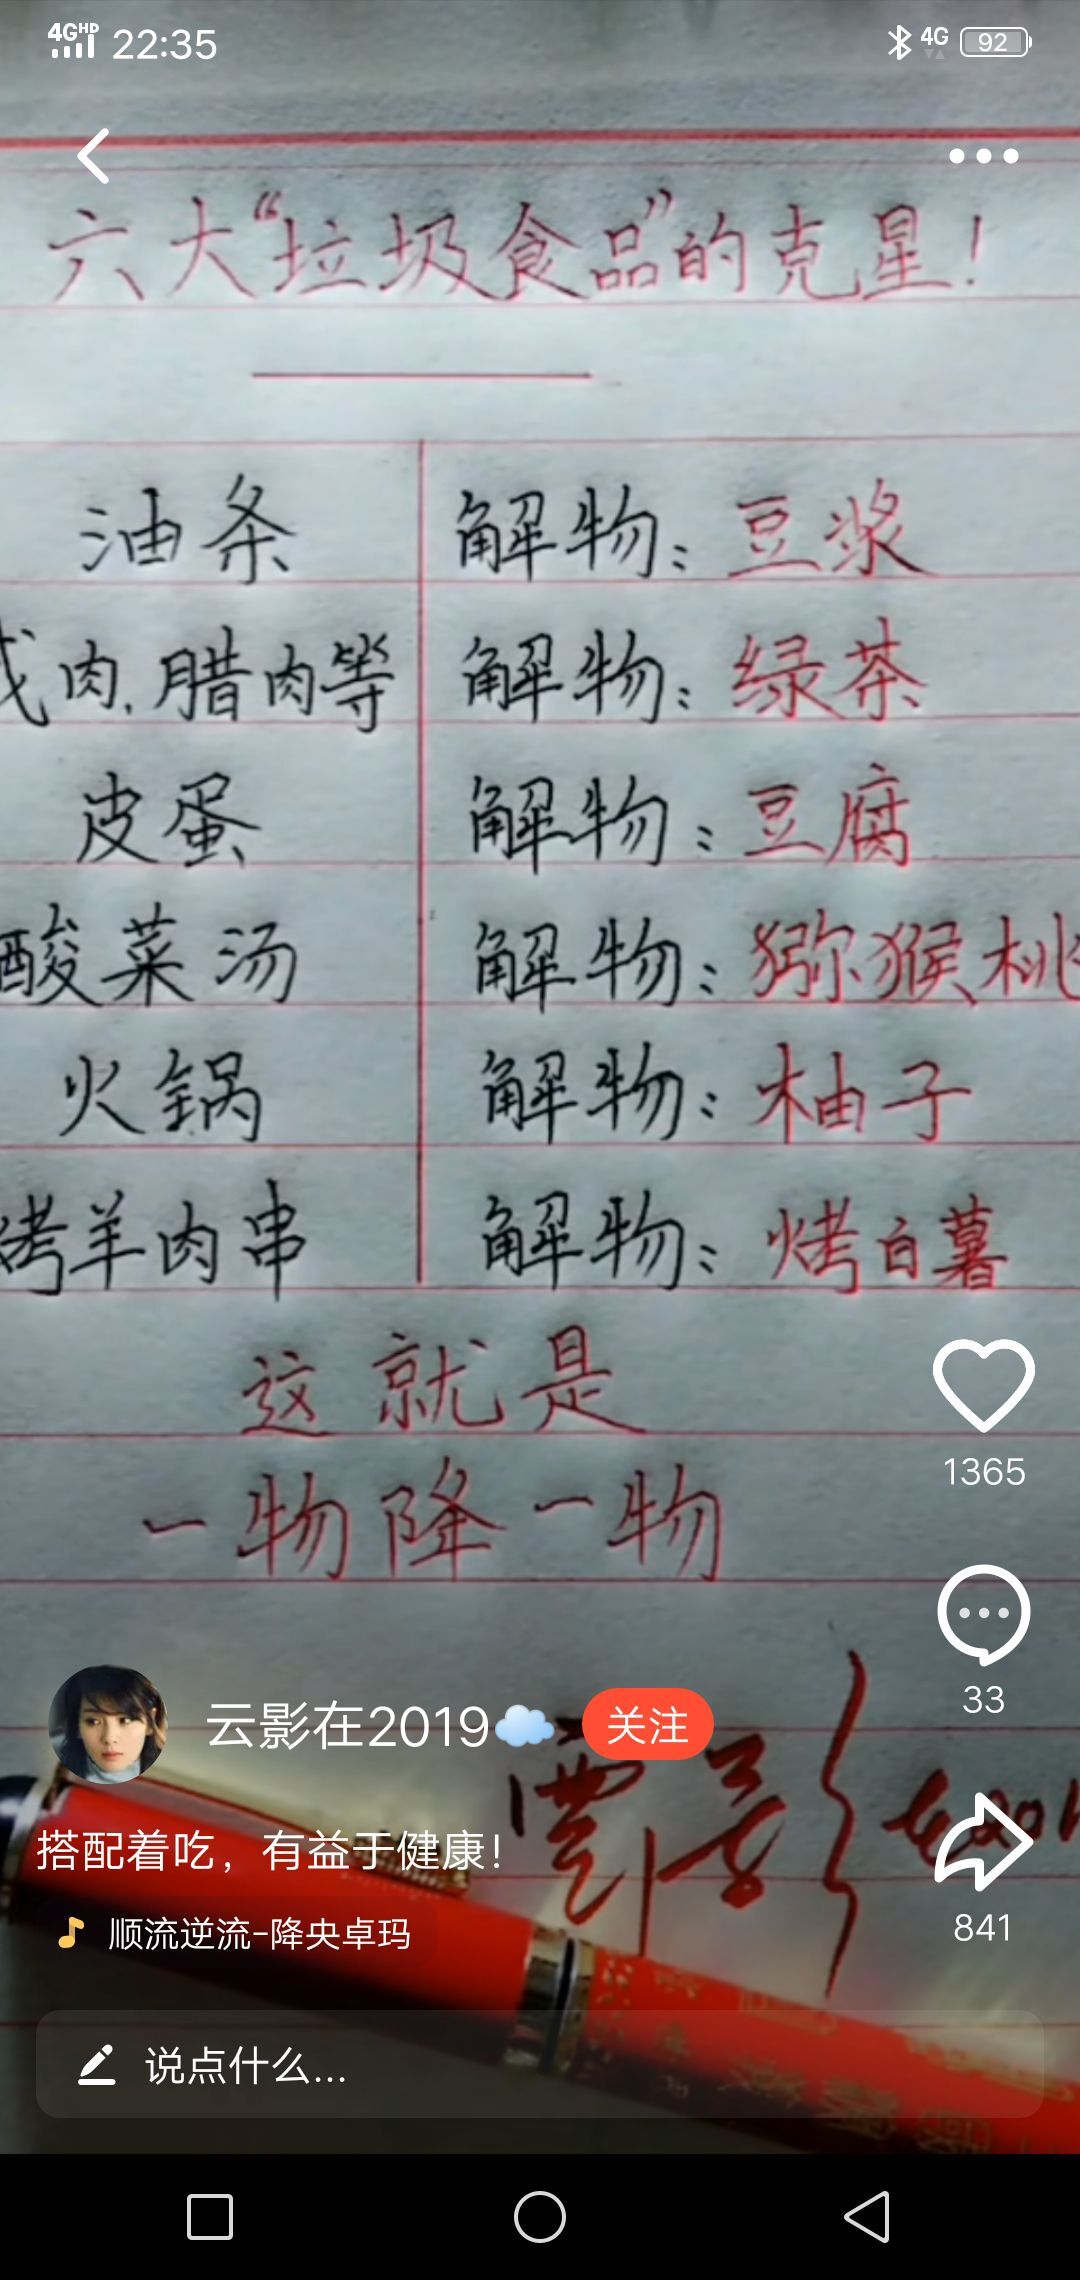 4G HD 22:35 4G 92
六大“垃圾食品”的克星！
油条 解物：豆浆
肉.腊肉等 解物：绿茶
皮蛋 解物：豆腐
酸菜汤 解物：猕猴桃
火锅 解物：柚子
烤羊肉串 解物：烤白薯
这就是
一物降一物
1365
33
云影在2019 关注
雲影
搭配着吃，有益于健康！
841
顺流逆流-降央卓玛
说点什么...